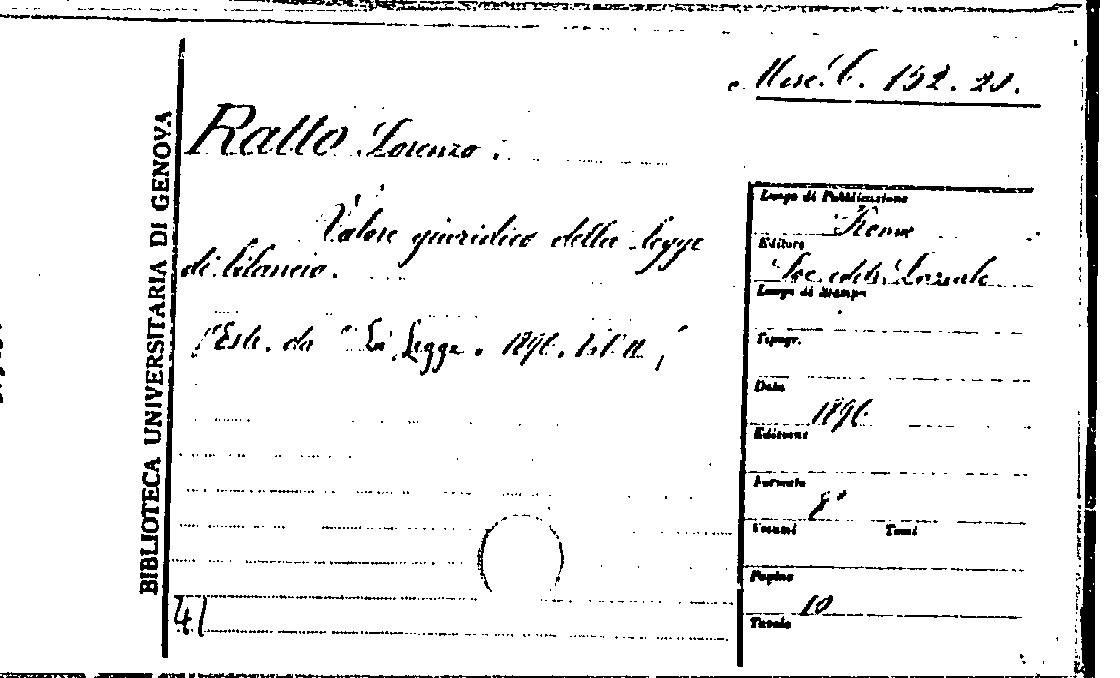 Misc. C. 152. 21.
BIBLIOTECA UNIVERSITARIA DI GENOVA
Ratto Lorenzo.
Valore giuridico della legge
di bilancio.
(Estr. da "La Legge. 1896.
Luogo di Pubblicazione
Roma
Editore
Soc. edit. Laziale
Luogo di stampa
Tipogr.
Data
1896
Edizione
Formato
8°
Volumi Tomi
Pagine
10
Tavole
41